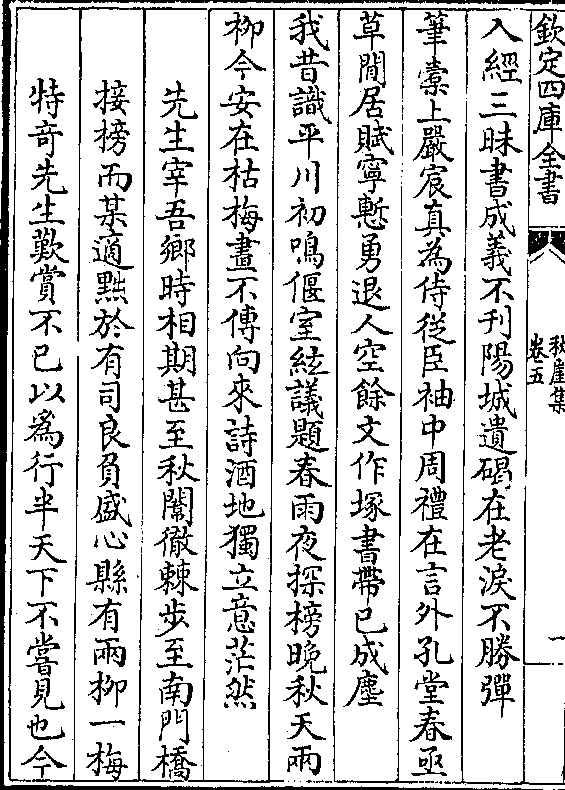 欽定四庫全書
秋崖集
卷五
一
入經三昧書成義不刊陽城遺碣在老淚不勝彈
筆橐上嚴宸真為侍從臣袖中周禮在言外孔堂春亟
草閒居賦寧慙勇退人空餘文作塚書帶已成塵
我昔識平川初鳴偃室絃議題春雨夜探榜晚秋天兩
柳今安在枯梅畫不傳向來詩酒地獨立意茫然
先生宰吾鄉時相期甚至秋闈徹棘步至南門橋
接榜而某適黜於有司良負盛心縣有兩柳一梅
特奇先生歎賞不已以為行半天下不嘗見也今